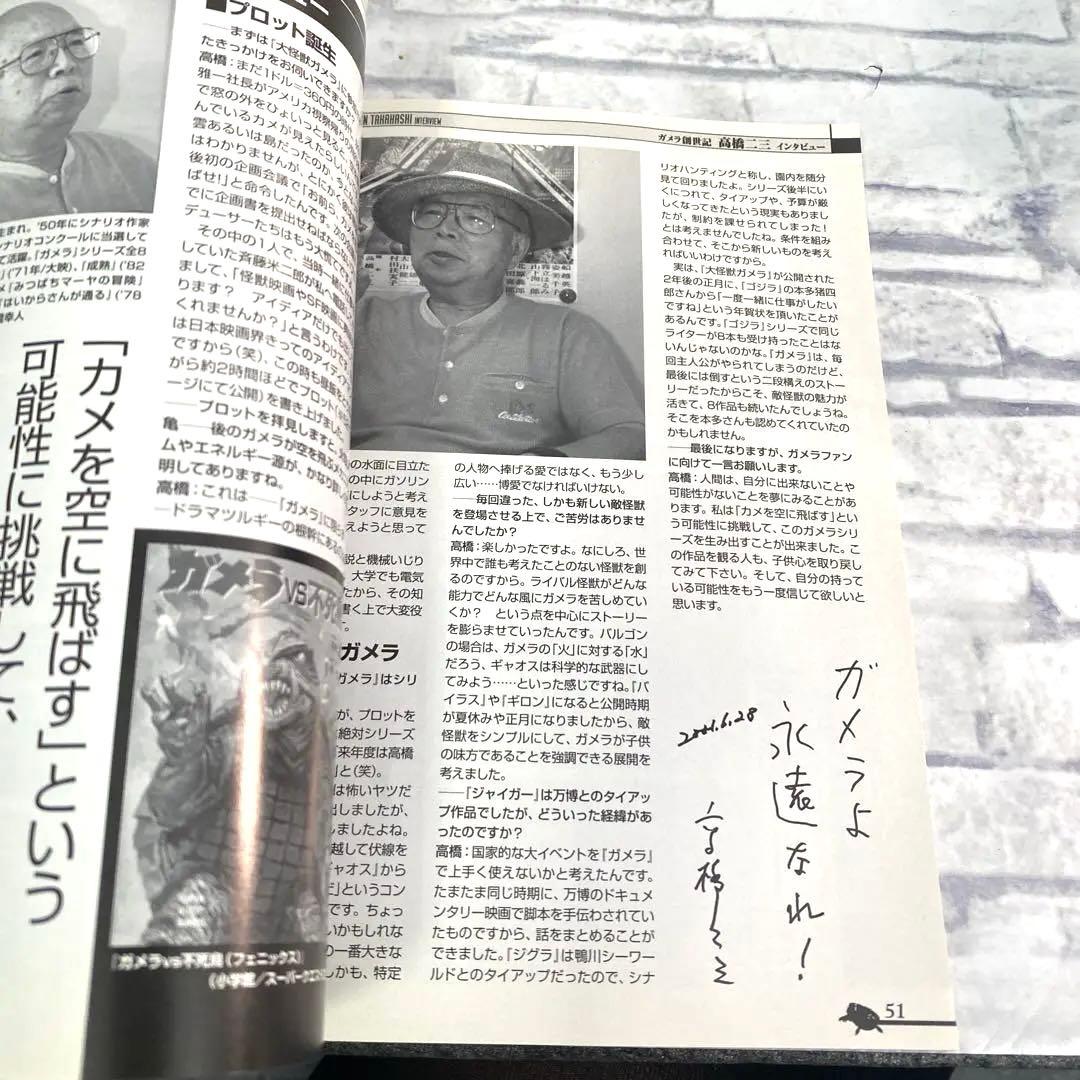 ■プロット誕生
──まずは「大怪獣ガメラ」に
たきっかけをお伺いできますか
高橋：まだ1ドル＝360円の
雅一社長がアメリカ視察
で窓の外をひょいっと見る
んでいるカメが見えたらしい
雲あるいは島だったのか、
はわかりませんが、とにかく
後初の企画会議で「お前ら、
ばせ!」と命令したんです。次の
でに企画書を提出せねば
デューサーたちはもう大慌て
その中の1人で、当時
していた斉藤米二郎が私へ
まして、「怪獣映画やSF映画
ります？　アイディアだけで
くれませんか？」と言うわけで
は日本映画界きってのアイディア
ですから(笑)、この時も
がら約2時間ほどでプロット
ージにて公開)を書き上げました
──プロットを拝見しますと、
亀──後のガメラが空を飛ぶメカ
ムやエネルギー源が、かなり
明してありますね。
高橋：これは──「ガメラ」に
─ドラマツルギーの根幹にある
生まれ。'50年にシナリオ作家
ナリオコンクールに当選して
て活躍。『ガメラ』シリーズ全8
('71年/大映)、「成熟」('82
メ「みつばちマーヤの冒険」
「はいからさんが通る」('78
幸人
「カメを空に飛ばす」という
可能性に挑戦して、
ガメラVS不死鳥
『ガメラvs不死鳥(フェニックス)』
(小学館／スーパークエスト
N TAKAHASHI INTERVIEW
ガメラ創世記 高橋二三 インタビュー
の水面に目立た
の中にガソリン
にしようと考え
タッフに意見を
えようと思って
説と機械いじり
大学でも電気
たから、その知
書く上で大変役
す。
ガメラ
ガメラ」はシリ
が、プロットを
絶対シリーズ
「来年度は高橋
」と(笑)。
は怖いヤツだ
出しましたが、
しましたよね。
越して伏線を
ギャオス』から
だ」というコン
です。ちょっ
いかもしれな
の一番大きな
しかも、特定
の人物へ捧げる愛ではなく、もう少し
広い……博愛でなければいけない。
──毎回違った、しかも新しい敵怪獣
を登場させる上で、ご苦労はありませ
んでしたか？
高橋：楽しかったですよ。なにしろ、世
界中で誰も考えたことのない怪獣を創
るのですから。ライバル怪獣がどんな
能力でどんな風にガメラを苦しめてい
くか？　という点を中心にストーリー
を膨らませていったんです。バルゴン
の場合は、ガメラの「火」に対する「水」
だろう、ギャオスは科学的な武器にし
てみよう……といった感じですね。『バ
イラス』や『ギロン』になると公開時期
が夏休みや正月になりましたから、敵
怪獣をシンプルにして、ガメラが子供
の味方であることを強調できる展開を
考えました。
──『ジャイガー』は万博とのタイアッ
プ作品でしたが、どういった経緯があ
ったのですか？
高橋：国家的な大イベントを『ガメラ』
で上手く使えないかと考えたんです。
たまたま同じ時期に、万博のドキュメ
ンタリー映画で脚本を手伝わされてい
たものですから、話をまとめることが
できました。『ジグラ』は鴨川シーワー
ルドとのタイアップだったので、シナ
リオハンティングと称し、園内を随分
見て回りましたよ。シリーズ後半にい
くにつれて、タイアップや、予算が厳
しくなってきたという現実もありまし
たが、制約を課せられてしまった！
とは考えませんでしたね。条件を組み
合わせて、そこから新しいものを考え
ればいいわけですから。
実は、『大怪獣ガメラ』が公開された
2年後の正月に、『ゴジラ』の本多猪四
郎さんから「一度一緒に仕事がしたい
ですね」という年賀状を頂いたことが
あるんです。『ゴジラ』シリーズで同じ
ライターが8本も受け持ったことはな
いんじゃないのかな。『ガメラ』は、毎
回主人公がやられてしまうのだけど、
最後には倒すという二段構えのストー
リーだったからこそ、敵怪獣の魅力が
活きて、8作品も続いたんでしょうね。
そこを本多さんも認めてくれていたの
かもしれません。
──最後になりますが、ガメラファン
に向けて一言お願いします。
高橋：人間は、自分に出来ないことや
可能性がないことを夢にみることがあ
ります。私は「カメを空に飛ばす」とい
う可能性に挑戦して、このガメラシリ
ーズを生み出すことが出来ました。こ
の作品を観る人も、子供心を取り戻し
てみて下さい。そして、自分の持って
いる可能性をもう一度信じて欲しいと
思います。
ガメラよ
永遠なれ！
2001.6.28
高橋二三
51